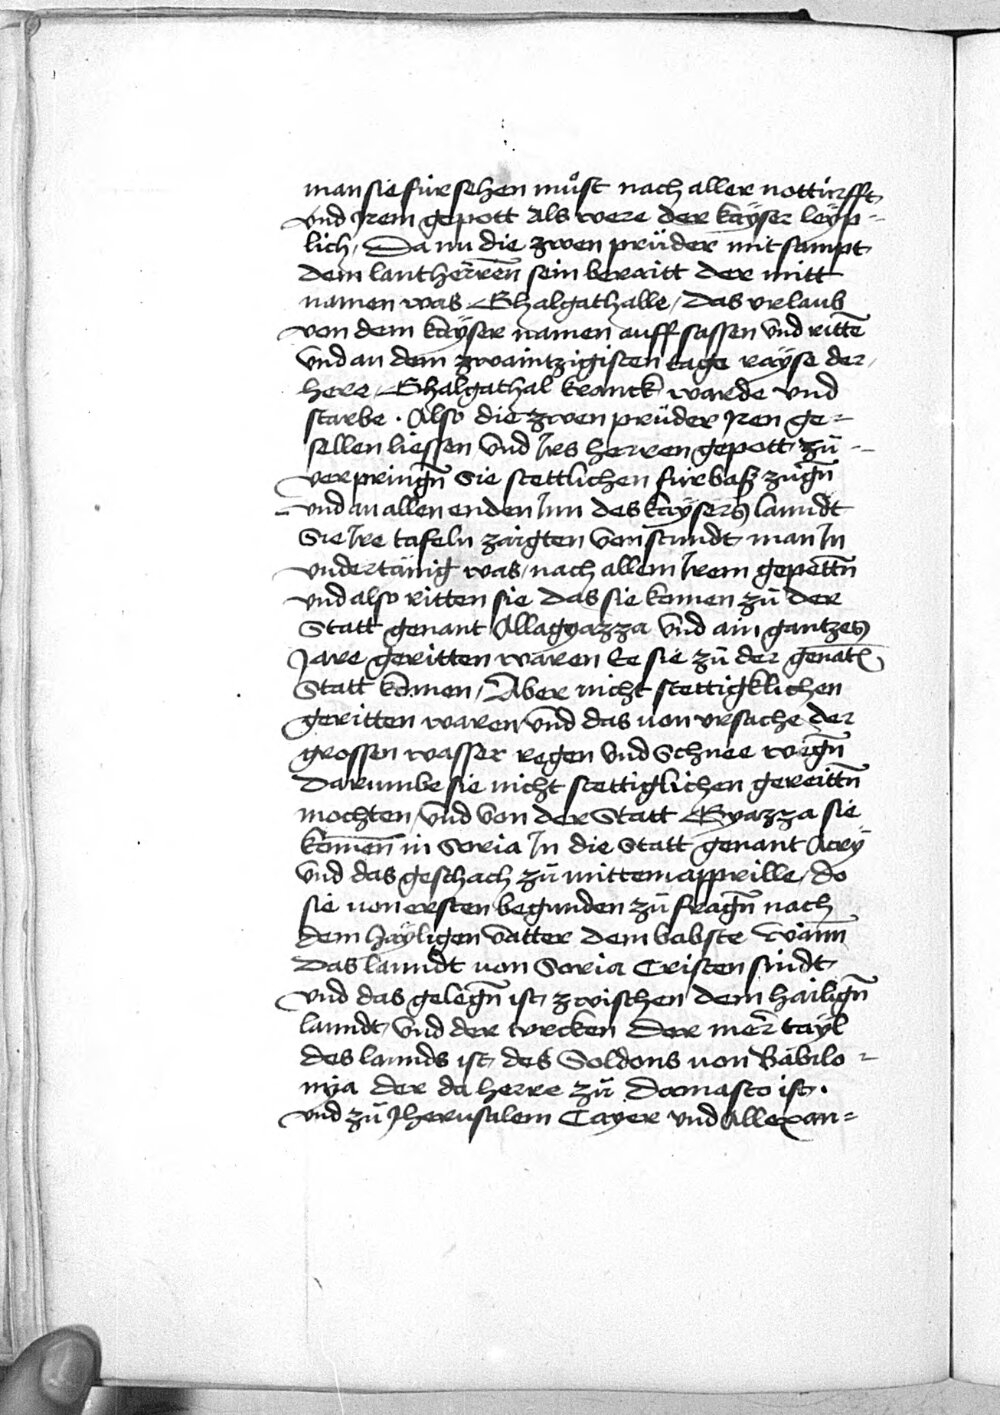 man sie fürsehen můst nach aller notturfft
vnd Jrem gepott Als were der kayser leyp-
lich / Da nu die zwen prüder mit sampt
dem lantherren sein berait der mitt
namen was Ghalgathalle / das vrlaub
von dem kayser namen auffsassen vnd rittē
vnd an dem zwaintzigisten tage rayse der
here Ghalgathal kranck warde vnd
starbe . Also die zwen prüder Jren ge-
sellen liessen vnd Jrs herren gepott zū -
verpringn̄ Sie stettlichen fürbaß zugn̄
vnd an allen enden Jnn des kaysers lanndt
Sie Jre tafeln zaigten von stundt man Jn
vndertänig was / nach allem Jrem gepottn̄
vnd also ritten sie das sie komen zū der
Statt genant Allagyazza vnd ain gantzes
Jare geritten waren Ee sie zū der genātē
Statt komen / Aber nicht stettigklichen
geritten waren vnd das von vrsache der
grossen wasser regen vnd Schnee wegn̄
Darumbe sie nicht stettiglichen gereittn̄
mochten / vnd von der Statt Gyazza sie
komen̄ in Soria Jn die Statt genant Acry
vnd das geschach zū mittem apprille / do
sie von ersten begunden zū fragn̄ nach
dem hayligen vatter dem babste wann̄
Das lanndt von Soria Cristen sindt
vnd das gelegn̄ ist zwischen dem hailign̄
lanndt vnd der turcken Der merr tayl
des lannds ist des Soldons von Babilo-
nya der da herre zū Domasco ist .
vnd zū Jherusalem Cayer vnd Allexan=